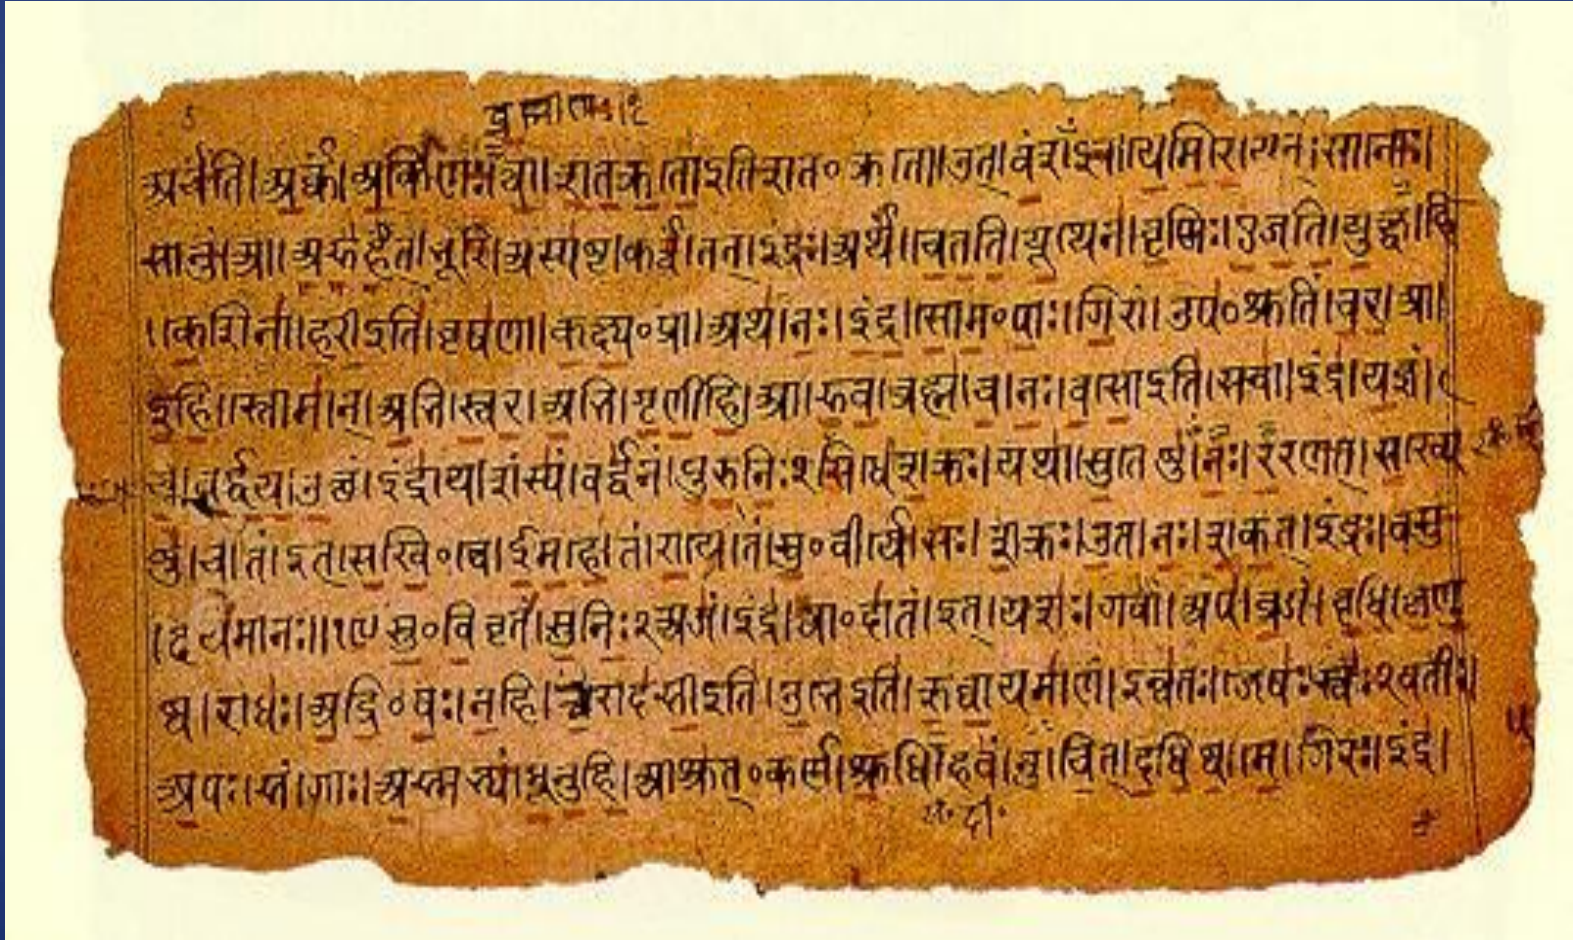 ब्रह्माणः।१
अर्चंति।अर्कं।अर्किणः।त्वा।शतक्रतो इति शत॰क्रतो।उत्।वंशंऽइव।येमिरे।यत्।सानोः।
सानुं।आ।अरुहत्।भूरि।अस्पष्ट।कर्त्वं।तत्।इंद्रः।अर्थं।चेतति।यूथेन।वृष्णिः।एजति।युक्ष्व।हि
।केशिना।हरी इति।वृषणा।कक्ष्य॰प्रा।अथ।नः।इंद्र।सोम॰पाः।गिरां।उप॰श्रुतिं।चर।आ।
इहि।स्तोमान्।अभि।स्वर।अभि।गृणीहि।आ।रुव।ब्रह्म।च।नः।वसो इति।सचा।इंद्र।यज्ञं।
च।वर्द्धय।उक्थं।इंद्राय।शंस्यं।वर्द्धनं।पुरुनिःऽसिधे।शक्रः।यथा।सुतेषु।नः।ररणत्।सख्ये
षु।च।तं।इत्।सखि॰त्वे।ईमहे।तं।राये।तं।सु॰वीर्ये।सः।शक्रः।उत।नः।शकत्।इंद्रः।वसु
।दयमानः॥१९ सु॰विवृतं।सुनिःऽअजं।इंद्र।त्वा॰दातं।इत्।यशः।गवां।अप।व्रजं।वृधि।कृणु
ष्व।राधः।अद्रि॰वः।नहि।त्वा।रोदसी इति।उभे इति।ऋघायमाणं।इन्वतः।जेषः।स्वःऽवतीः।
अपः।सं।गाः।अस्मभ्यं।धूनुहि।आश्रुत्॰कर्ण।श्रुधि।हवं।नु।चित्।दधिष्व।मे।गिरः।इंद्र।